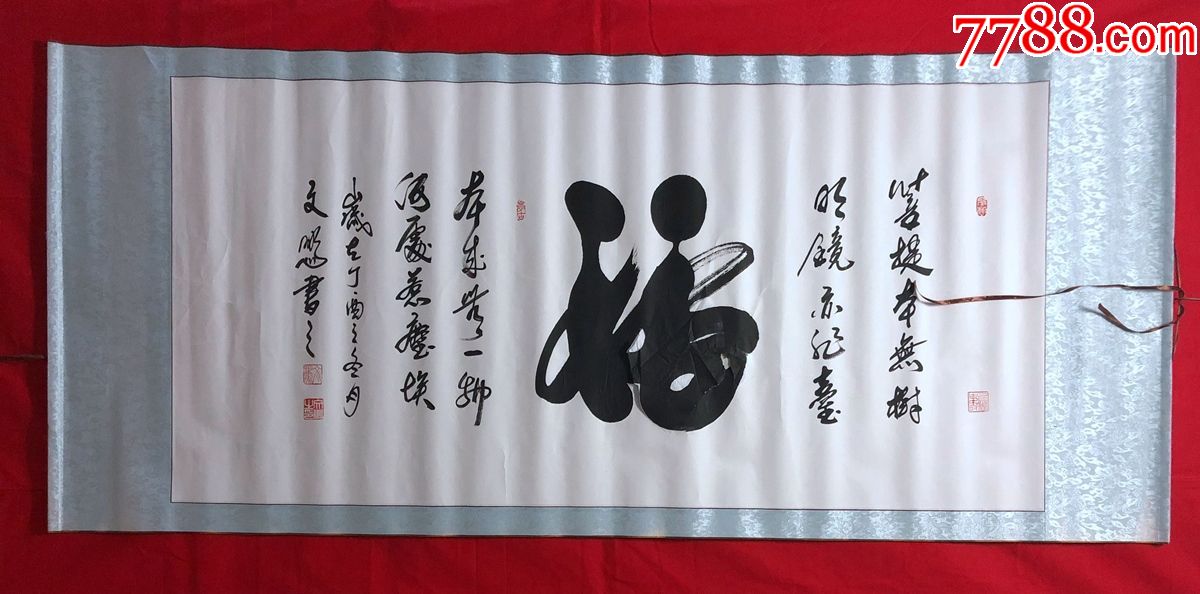 7788.com
菩提本無樹
明鏡亦非臺
福
本来無一物
何處惹塵埃
歲在丁酉之冬月
文書之